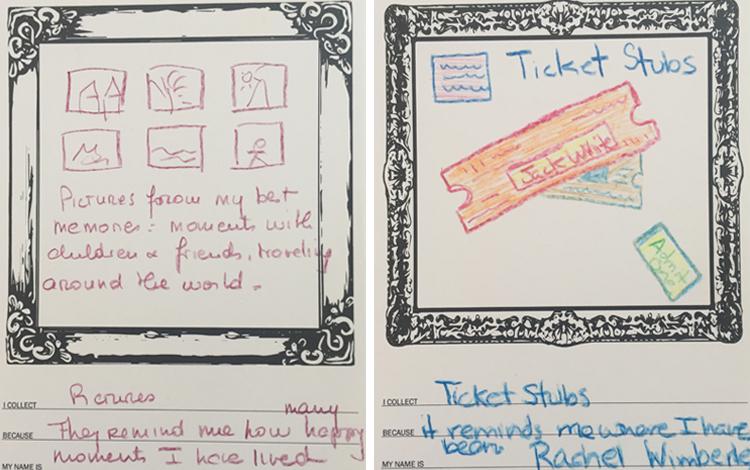 Pictures forom my best
memories: moments with
children & friends, traveling
around the world.
I COLLECT Pictures
many
BECAUSE They remind me how happy
moments I have lived
MY NAME IS
Ticket Stubs
Jack White
Admit
One
I COLLECT Ticket Stubs
BECAUSE it reminds me where I have
been
MY NAME IS Rachel Wimberle